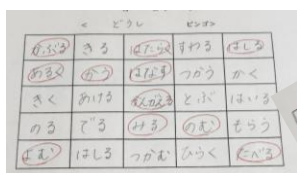 < どうし ビンゴ>
かぶる きる はたらく すわる はしる
あるく かう はなす つかう かく
きく あける かんがえる とぶ はいる
のる でる みる のむ もらう
よむ はしる つかむ ひらく たべる